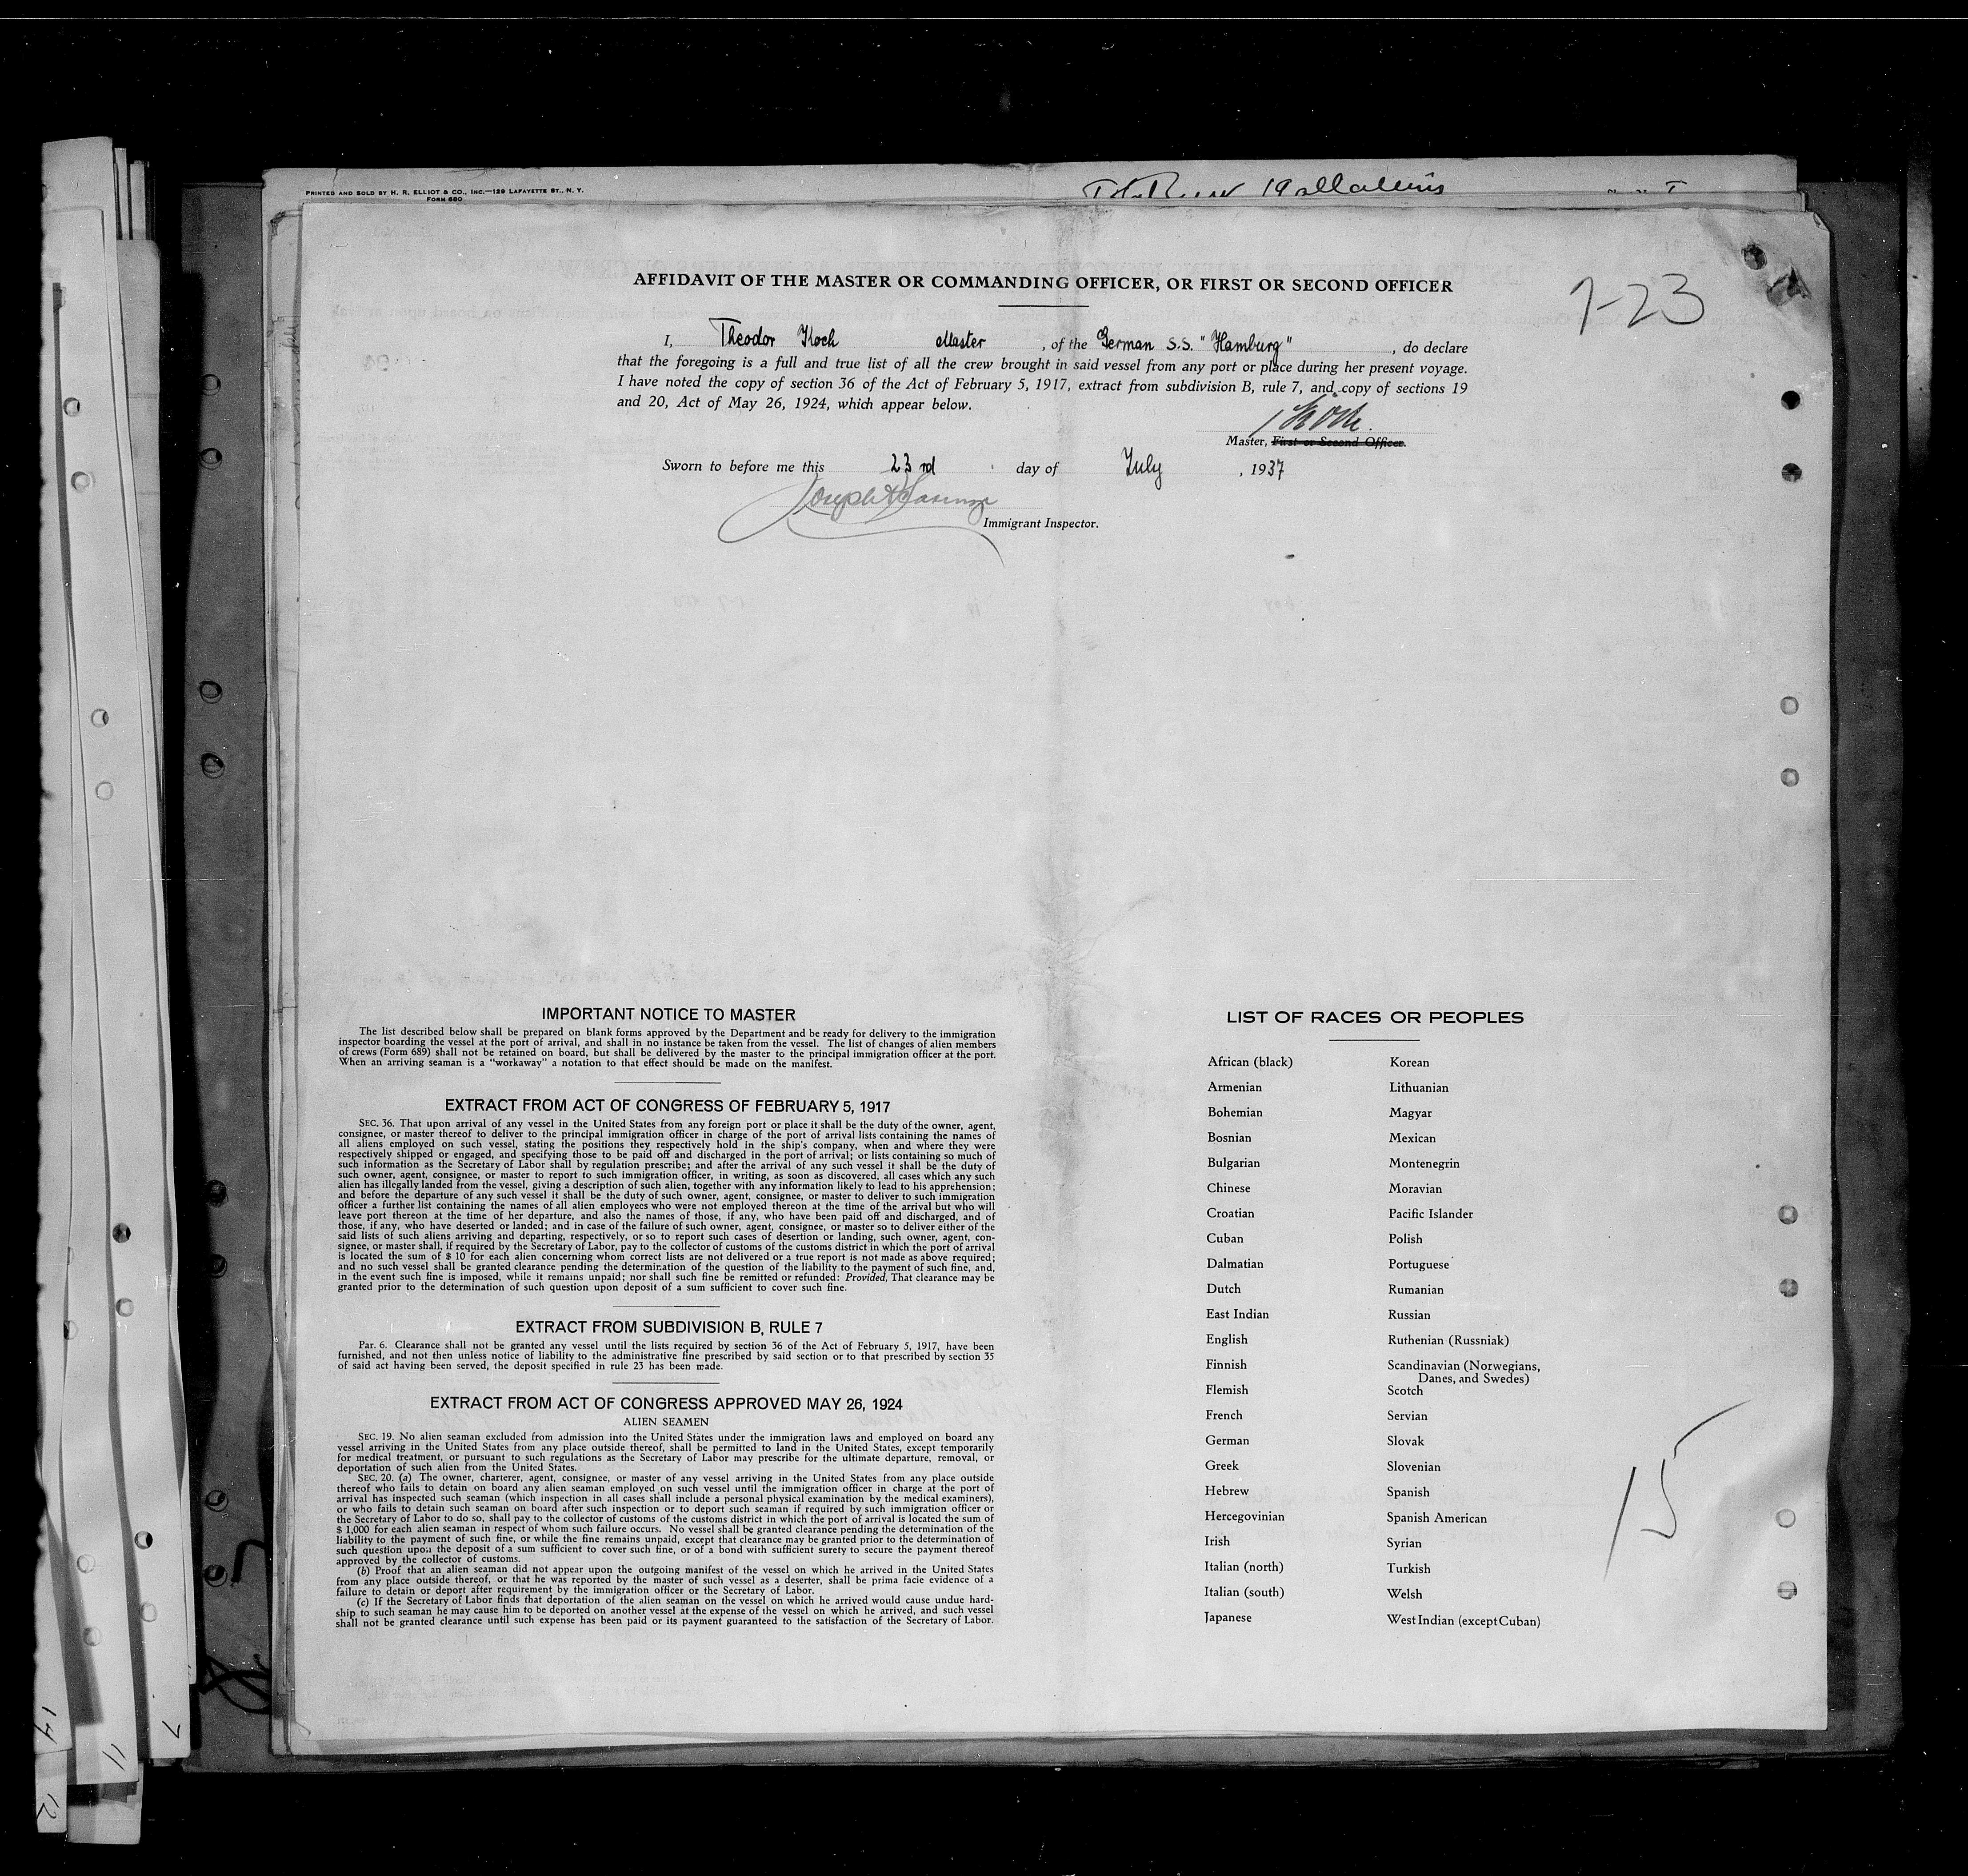 PRINTED AND SOLD BY H. R. ELLIOT & CO., INC.—129 LAFAYETTE ST., N. Y.
FORM 680
AFFIDAVIT OF THE MASTER OR COMMANDING OFFICER, OR FIRST OR SECOND OFFICER
7-23
I, Theodor Koch Master, of the German S.S. "Hamburg", do declare
that the foregoing is a full and true list of all the crew brought in said vessel from any port or place during her present voyage.
I have noted the copy of section 36 of the Act of February 5, 1917, extract from subdivision B, rule 7, and copy of sections 19
and 20, Act of May 26, 1924, which appear below.
Koch.
Master, First or Second Officer.
Sworn to before me this 23rd day of July, 1937
Joseph
Immigrant Inspector.
IMPORTANT NOTICE TO MASTER
The list described below shall be prepared on blank forms approved by the Department and be ready for delivery to the immigration
inspector boarding the vessel at the port of arrival, and shall in no instance be taken from the vessel. The list of changes of alien members
of crews (Form 689) shall not be retained on board, but shall be delivered by the master to the principal immigration officer at the port.
When an arriving seaman is a "workaway" a notation to that effect should be made on the manifest.
EXTRACT FROM ACT OF CONGRESS OF FEBRUARY 5, 1917
SEC. 36. That upon arrival of any vessel in the United States from any foreign port or place it shall be the duty of the owner, agent,
consignee, or master thereof to deliver to the principal immigration officer in charge of the port of arrival lists containing the names of
all aliens employed on such vessel, stating the positions they respectively hold in the ship's company, when and where they were
respectively shipped or engaged, and specifying those to be paid off and discharged in the port of arrival; or lists containing so much of
such information as the Secretary of Labor shall by regulation prescribe; and after the arrival of any such vessel it shall be the duty of
such owner, agent, consignee, or master to report to such immigration officer, in writing, as soon as discovered, all cases which any such
alien has illegally landed from the vessel, giving a description of such alien, together with any information likely to lead to his apprehension;
and before the departure of any such vessel it shall be the duty of such owner, agent, consignee, or master to deliver to such immigration
officer a further list containing the names of all alien employees who were not employed thereon at the time of the arrival but who will
leave port thereon at the time of her departure, and also the names of those, if any, who have been paid off and discharged, and of
those, if any, who have deserted or landed; and in case of the failure of such owner, agent, consignee, or master so to deliver either of the
said lists of such aliens arriving and departing, respectively, or so to report such cases of desertion or landing, such owner, agent, con-
signee, or master shall, if required by the Secretary of Labor, pay to the collector of customs of the customs district in which the port of arrival
is located the sum of $ 10 for each alien concerning whom correct lists are not delivered or a true report is not made as above required;
and no such vessel shall be granted clearance pending the determination of the question of the liability to the payment of such fine, and,
in the event such fine is imposed, while it remains unpaid; nor shall such fine be remitted or refunded: Provided, That clearance may be
granted prior to the determination of such question upon deposit of a sum sufficient to cover such fine.
EXTRACT FROM SUBDIVISION B, RULE 7
Par. 6. Clearance shall not be granted any vessel until the lists required by section 36 of the Act of February 5, 1917, have been
furnished, and not then unless notice of liability to the administrative fine prescribed by said section or to that prescribed by section 35
of said act having been served, the deposit specified in rule 23 has been made.
EXTRACT FROM ACT OF CONGRESS APPROVED MAY 26, 1924
ALIEN SEAMEN
SEC. 19. No alien seaman excluded from admission into the United States under the immigration laws and employed on board any
vessel arriving in the United States from any place outside thereof, shall be permitted to land in the United States, except temporarily
for medical treatment, or pursuant to such regulations as the Secretary of Labor may prescribe for the ultimate departure, removal, or
deportation of such alien from the United States.
SEC. 20. (a) The owner, charterer, agent, consignee, or master of any vessel arriving in the United States from any place outside
thereof who fails to detain on board any alien seaman employed on such vessel until the immigration officer in charge at the port of
arrival has inspected such seaman (which inspection in all cases shall include a personal physical examination by the medical examiners),
or who fails to detain such seaman on board after such inspection or to deport such seaman if required by such immigration officer or
the Secretary of Labor to do so, shall pay to the collector of customs of the customs district in which the port of arrival is located the sum of
$ 1,000 for each alien seaman in respect of whom such failure occurs. No vessel shall be granted clearance pending the determination of the
liability to the payment of such fine, or while the fine remains unpaid, except that clearance may be granted prior to the determination of
such question upon the deposit of a sum sufficient to cover such fine, or of a bond with sufficient surety to secure the payment thereof
approved by the collector of customs.
(b) Proof that an alien seaman did not appear upon the outgoing manifest of the vessel on which he arrived in the United States
from any place outside thereof, or that he was reported by the master of such vessel as a deserter, shall be prima facie evidence of a
failure to detain or deport after requirement by the immigration officer or the Secretary of Labor.
(c) If the Secretary of Labor finds that deportation of the alien seaman on the vessel on which he arrived would cause undue hard-
ship to such seaman he may cause him to be deported on another vessel at the expense of the vessel on which he arrived, and such vessel
shall not be granted clearance until such expense has been paid or its payment guaranteed to the satisfaction of the Secretary of Labor.
LIST OF RACES OR PEOPLES
African (black) Korean
Armenian Lithuanian
Bohemian Magyar
Bosnian Mexican
Bulgarian Montenegrin
Chinese Moravian
Croatian Pacific Islander
Cuban Polish
Dalmatian Portuguese
Dutch Rumanian
East Indian Russian
English Ruthenian (Russniak)
Finnish Scandinavian (Norwegians,
Danes, and Swedes)
Flemish Scotch
French Servian
German Slovak
Greek Slovenian
Hebrew Spanish
Hercegovinian Spanish American
Irish Syrian
Italian (north) Turkish
Italian (south) Welsh
Japanese West Indian (except Cuban)
15
14
11
7
12